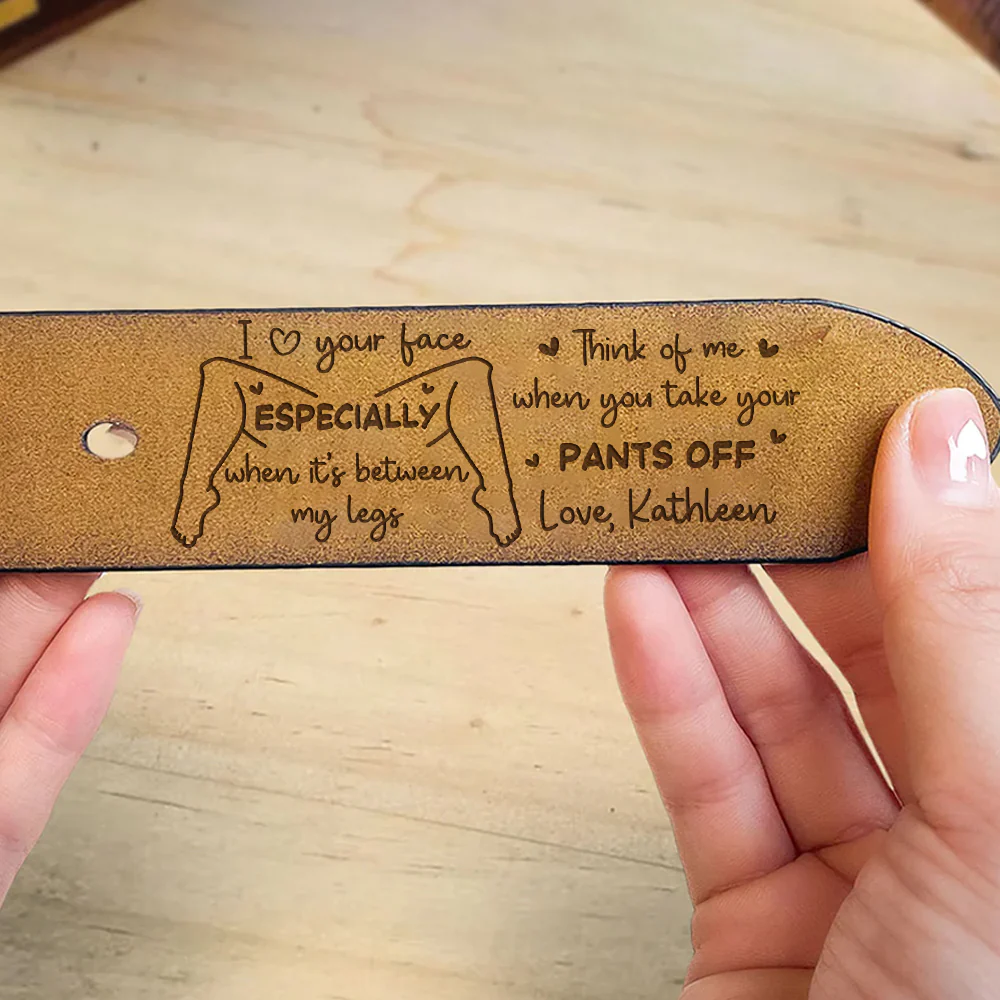 I ♡ your face
ESPECIALLY
when it's between
my legs
Think of me
when you take your
PANTS OFF
Love, Kathleen